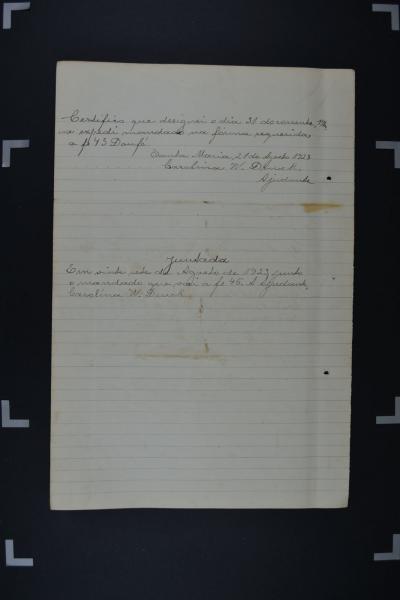 Certifico que designei o dia 31 do corrente,
expedi mandado na forma requerida
a fs 43 Dou fé
Santa Maria, 21 de Agosto 1923
Carolina W. Druck.
Ajudante
Juntada
Em vinte sete de Agosto de 1923 junto
o mandado que vai a fs 45. A Ajudante,
Carolina W. Druck